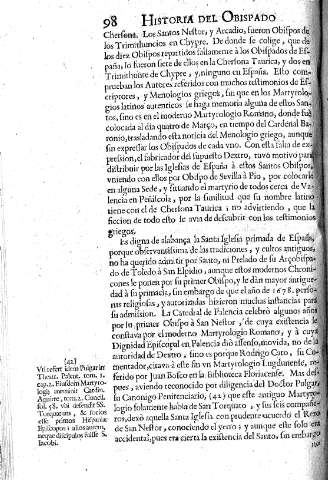 98 HISTORIA DEL OBISPADO
Chersona. Los Santos Nestor, y Arcadio, fueron Obispos de
los Trimithuncios en Chypre. De donde se colige, que de
los diez Obispos repartidos falsamente à los Obispados de Es-
paña, lo fueron siete de ellos en la Chersona Taurica, y dos en
Trimithunte de Chypre, y ninguno en España. Esto com-
prueban los Autores referidos con muchos testimonios de Es-
criptores, y Menologios griegos, sin que en los Martyrolo-
gios latinos autenticos se haga memoria alguna de estos San-
tos, sino es en el moderno Martyrologio Romano, donde fuè
colocada al dia quatro de Março, en tiempo del Cardenal Ba-
ronio, trasladando esta noticia del Menologio griego, aunque
sin expressar los Obispados de cada vno. Con esta falta de ex-
pression, el fabricador del supuesto Dextro, tuvo motivo para
distribuir por las Iglesias de España à estos Santos Obispos,
viniendo con ellos por Obispo de Sevilla à Pio, por colocarle
en alguna Sede, y situando el martyrio de todos cerca de Va-
lencia en Peñiscola, por la similitud que su nombre latino
tiene con el de Chersona Taurica, no advirtiendo, que la
ficcion de todo esto se avia de descubrir con los testimonios
griegos.
Es digna de alabança la Santa Iglesia primada de España,
porque observantissima de las tradiciones, y cultos antiguos,
no ha querido admitir por Santo, ni Prelado de su Arçobispa-
do de Toledo à San Elpidio, aunque estos modernos Chroni-
cones le ponian por su primer Obispo, y le dàn mayor antigue-
dad à su primacia, sin embargo de que el año de 1678. perso-
nas religiosas, y autorizadas hizieron muchas instancias para
su admission. La Catedral de Palencia celebrò algunos años
por su primer Obispo à San Nestor, de cuya existencia le
constava por el moderno Martyrologio Romano, y à cuya
Dignidad Episcopal en Palencia diò assenso, movida, no de la
autoridad de Dextro, sino es porque Rodrigo Caro, su Co-
mentador, citava à este fin vn Martyrologio Lugdunense, re-
ferido por Juan Bosco en la Bibliotheca Floriacense. Mas des-
pues, aviendo reconocido por diligencia del Doctor Pulgar,
su Canonigo Penitenciario, (42) que este antiguo Martyro-
logio solamente habla de San Torquato, y sus seis compañe-
ros, dexò aquella Santa Iglesia con prudente acuerdo el Rezo
de San Nestor, conociendo el yerro; y aunque este solo era
accidental, pues era cierta la existencia del Santo, sin embargo
(42)
Vti refert idem Pulgar in
Theatr. Palent. tom. 1.
cap. 2. Eiusdem Martyro-
logio meminit Cardin.
Aguirre, tom. 2. Concil.
fol. 58. vbi defendit SS.
Torquatum, & socios
esse primos Hispaniæ
Episcopos: alios autem,
neque discipulos fuisse S.
Iacobi.